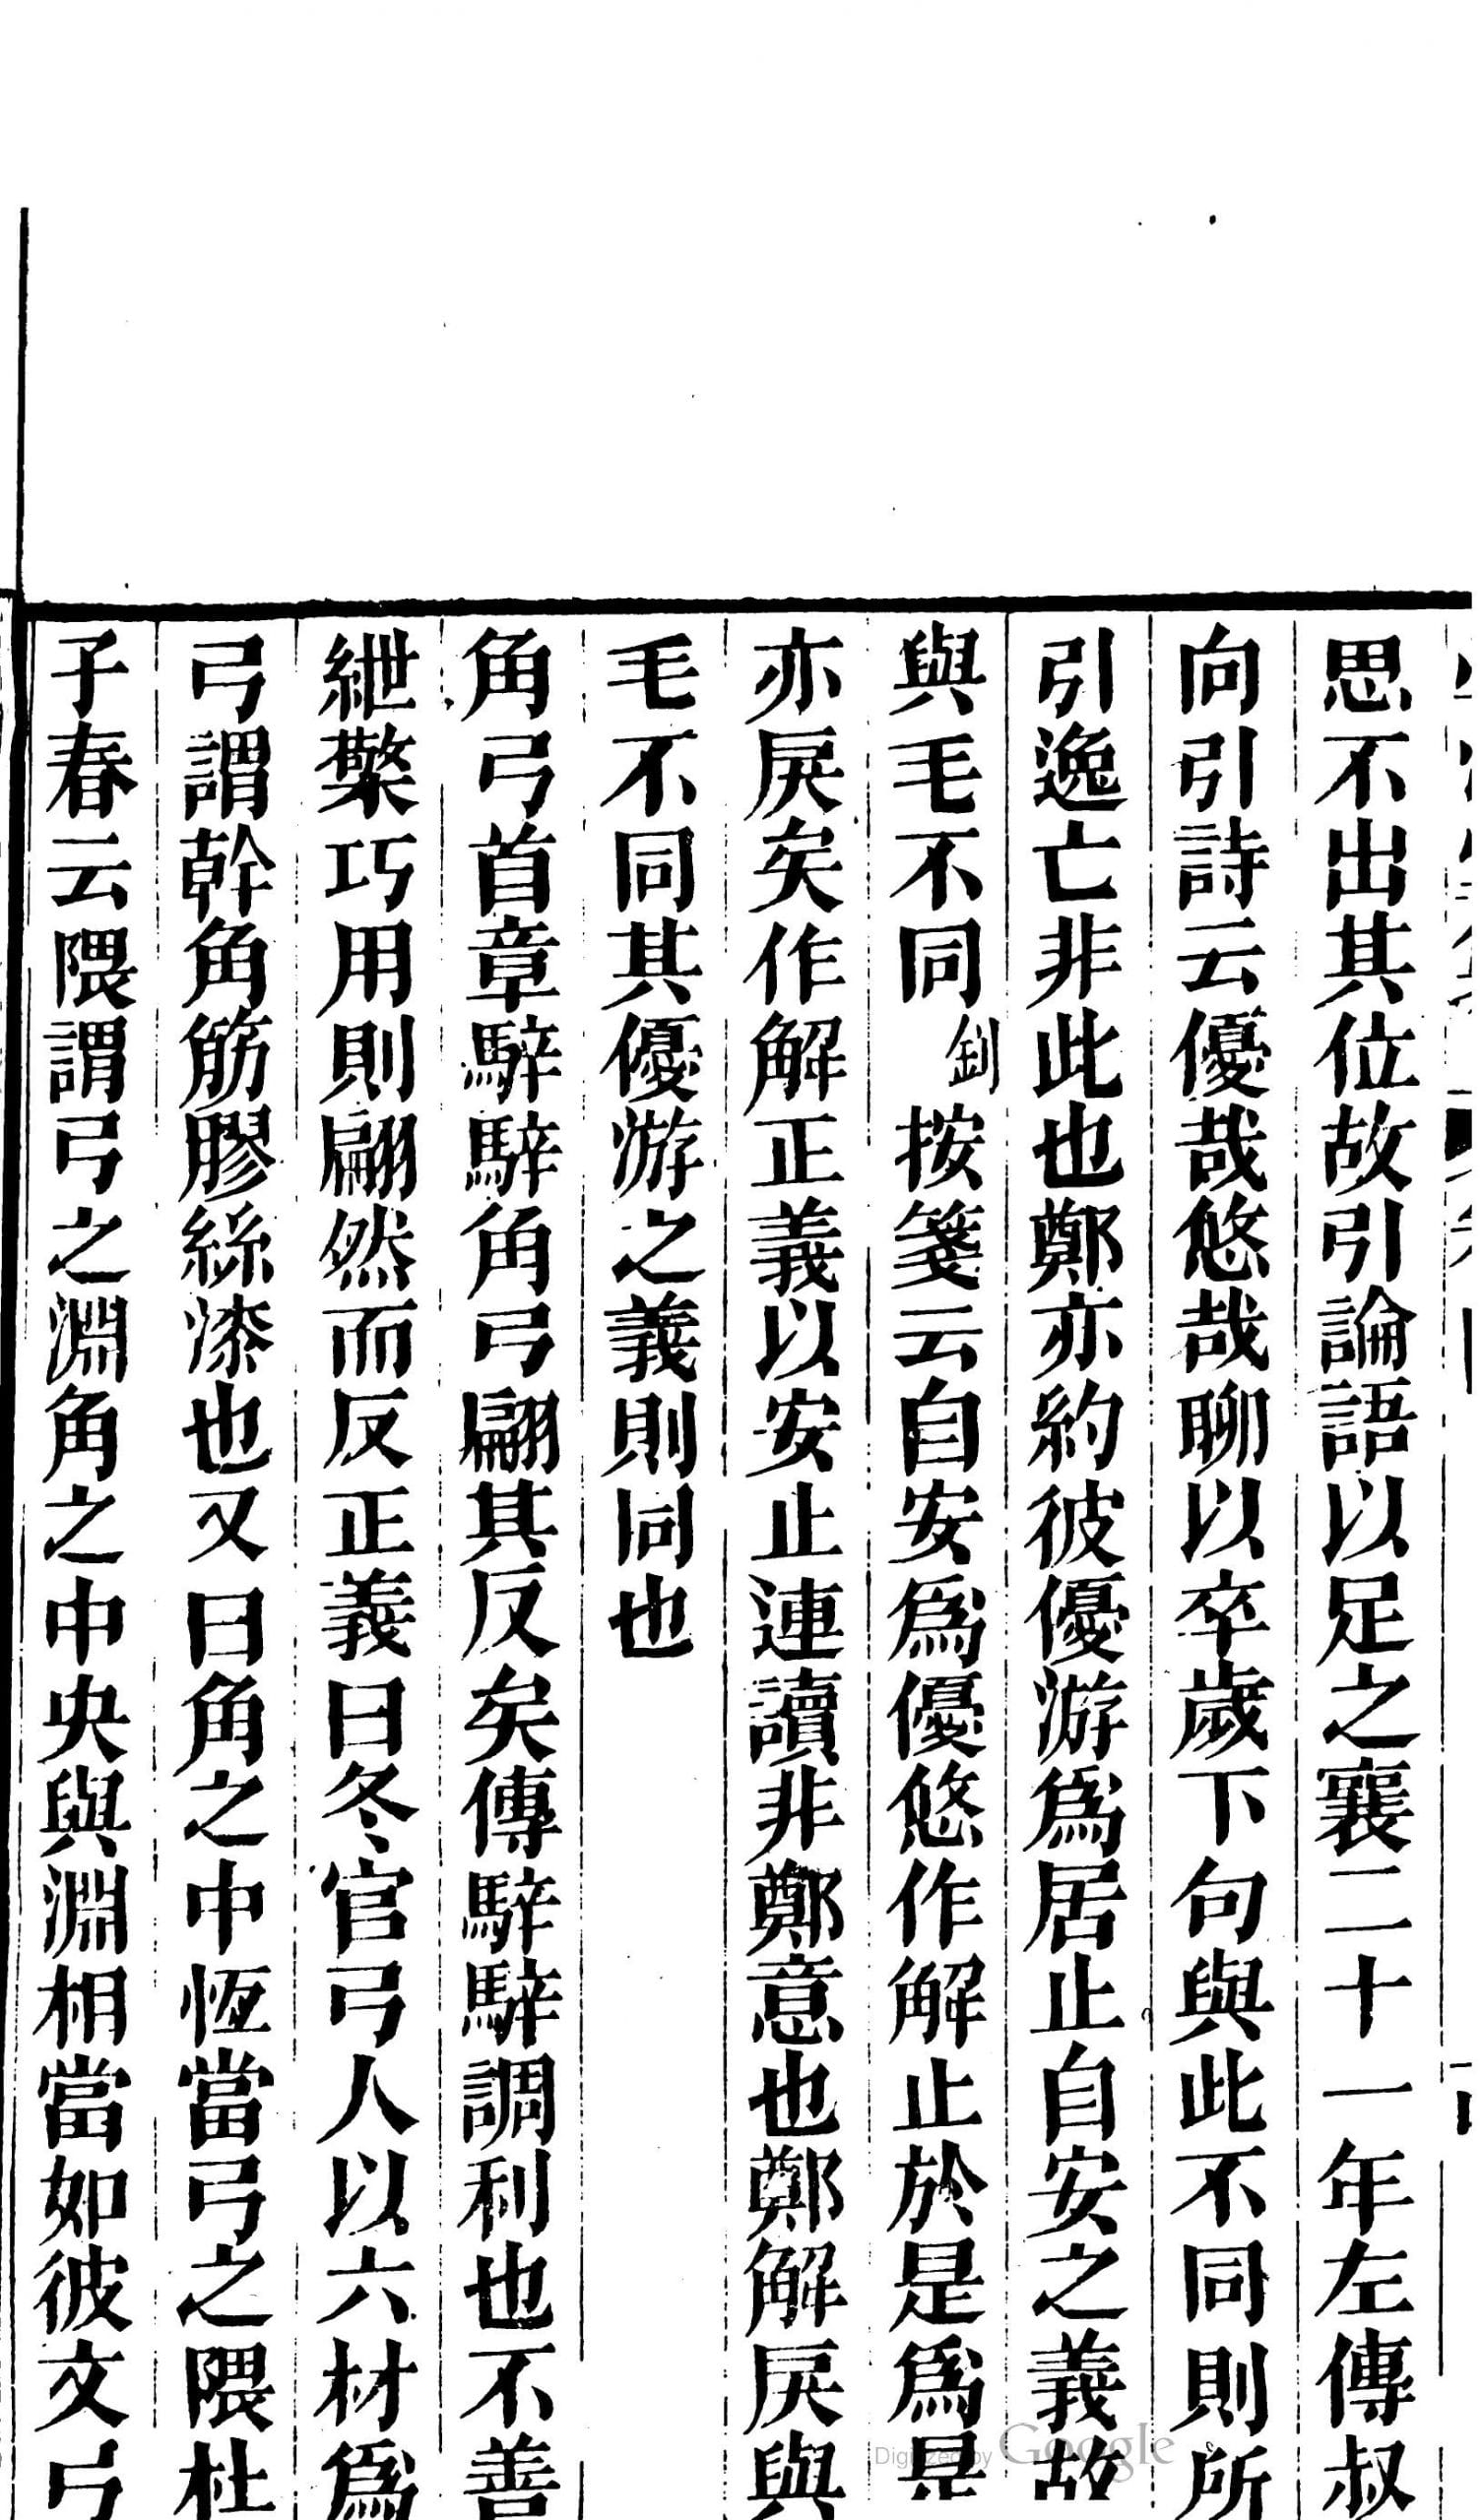 思不出其位故引論語以足之襄二十一年左傳叔
向引詩云優哉悠哉聊以卒歲下句與此不同則所
引逸亡非此也鄭亦約彼優游爲居止自安之義故
與毛不同釗按箋云自安爲優悠作解止於是爲是
亦戾矣作解正義以安止連讀非鄭意也鄭解戾與
毛不同其優游之義則同也
角弓首章騂騂角弓翩其反矣傳騂騂調利也不善
紲檠巧用則翩然而反正義曰冬官弓人以六材爲
弓謂幹角筋膠絲漆也又曰角之中恆當弓之隈杜
子春云隈謂弓之淵角之中央與淵相當如彼文弓
Digitized by Google